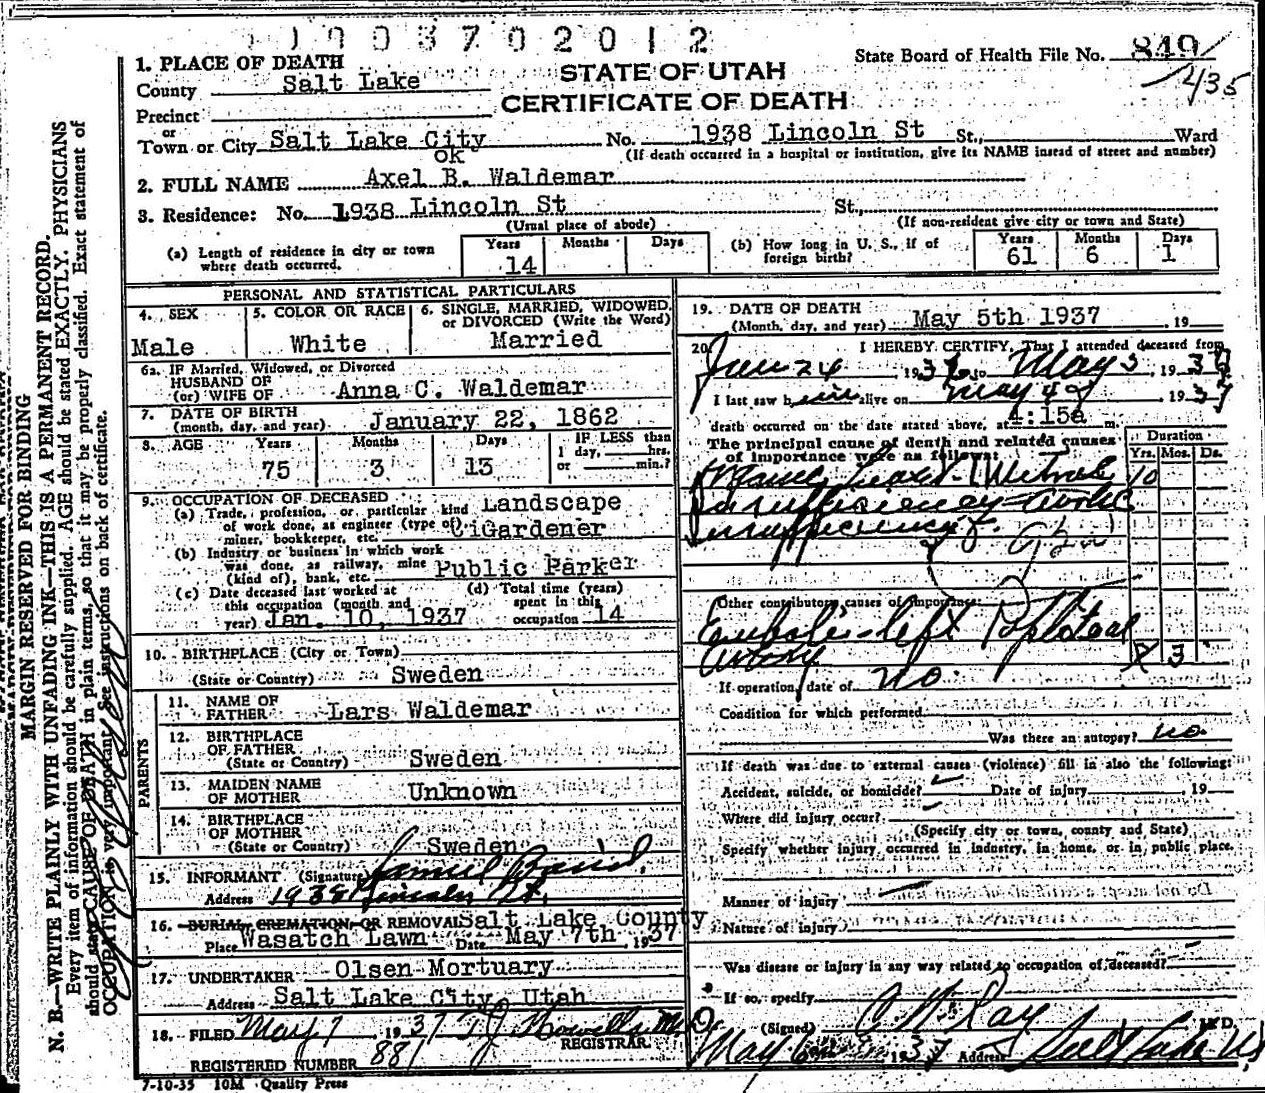 1 1 9 0 3 7 0 2 0 1 2
State Board of Health File No. 849
435
STATE OF UTAH
CERTIFICATE OF DEATH
1. PLACE OF DEATH
County Salt Lake
Precinct
or
Town or City Salt Lake City No. 1938 Lincoln St St., Ward
ok
(If death occurred in a hospital or institution, give its NAME instead of street and number)
2. FULL NAME Axel B. Waldemar
3. Residence: No. 1938 Lincoln St St.,
(Usual place of abode) (If non-resident give city or town and State)
(a) Length of residence in city or town where death occurred. Years 14 Months Days
(b) How long in U. S., if of foreign birth? Years 61 Months 6 Days 1
PERSONAL AND STATISTICAL PARTICULARS
4. SEX Male
5. COLOR OR RACE White
6. SINGLE, MARRIED, WIDOWED, or DIVORCED (Write the Word) Married
6a. IF Married, Widowed, or Divorced
HUSBAND OF
(or) WIFE OF Anna C. Waldemar
7. DATE OF BIRTH
(month, day, and year) January 22, 1862
8. AGE Years 75 Months 3 Days 13
IF LESS than 1 day, hrs. or min.?
9. OCCUPATION OF DECEASED
(a) Trade, profession, or particular kind of work done, as engineer (type of), miner, bookkeeper, etc. Landscape Gardener
(b) Industry or business in which work was done, as railway, mine (kind of), bank, etc. Public Parker
(c) Date deceased last worked at this occupation (month and year) Jan. 10, 1937
(d) Total time (years) spent in this occupation 14
10. BIRTHPLACE (City or Town)
(State or Country) Sweden
PARENTS
11. NAME OF FATHER Lars Waldemar
12. BIRTHPLACE OF FATHER
(State or Country) Sweden
13. MAIDEN NAME OF MOTHER Unknown
14. BIRTHPLACE OF MOTHER
(State or Country) Sweden
15. INFORMANT (Signature) Samuel Baird
Address 1938 Lincoln St.
16. BURIAL, CREMATION, OR REMOVAL Salt Lake County
Place Wasatch Lawn Date May 7th, 1937
17. UNDERTAKER Olsen Mortuary
Address Salt Lake City, Utah
18. FILED May 7 1937 T J Howells M D
REGISTRAR
REGISTERED NUMBER 881
7-10-35 10M Quality Press
19. DATE OF DEATH
(Month, day, and year) May 5th 1937, 19
20. I HEREBY CERTIFY, That I attended deceased from
Jan 24 1937 to May 5, 1937
I last saw him alive on May 4, 1937
death occurred on the date stated above, at 4:15a m.
The principal cause of death and related causes of importance were as follows:
Duration
Yrs. Mos. Ds.
Mitral 10
insufficiency Aortic
insufficiency
Other contributory causes of importance:
Embolis left Popliteal
Artery 3
If operation, date of no.
Condition for which performed
Was there an autopsy? no
If death was due to external causes (violence) fill in also the following:
Accident, suicide, or homicide? Date of injury , 19
Where did injury occur?
(Specify city or town, county and State)
Specify whether injury occurred in industry, in home, or in public place.
Manner of injury
Nature of injury
Was disease or injury in any way related to occupation of deceased?
If so, specify
(Signed) M.D.
May 6 1937 Address Salt Lake
MARGIN RESERVED FOR BINDING
N. B.—WRITE PLAINLY WITH UNFADING INK—THIS IS A PERMANENT RECORD.
Every item of information should be carefully supplied. AGE should be stated EXACTLY. PHYSICIANS
should state CAUSE OF DEATH in plain terms, so that it may be properly classified. Exact statement of
OCCUPATION is very important. See instructions on back of certificate.